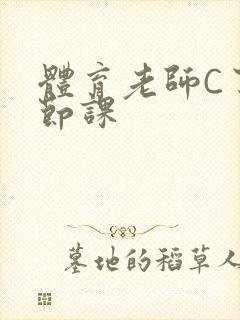 體育老師C
節課
墓地的稻草人